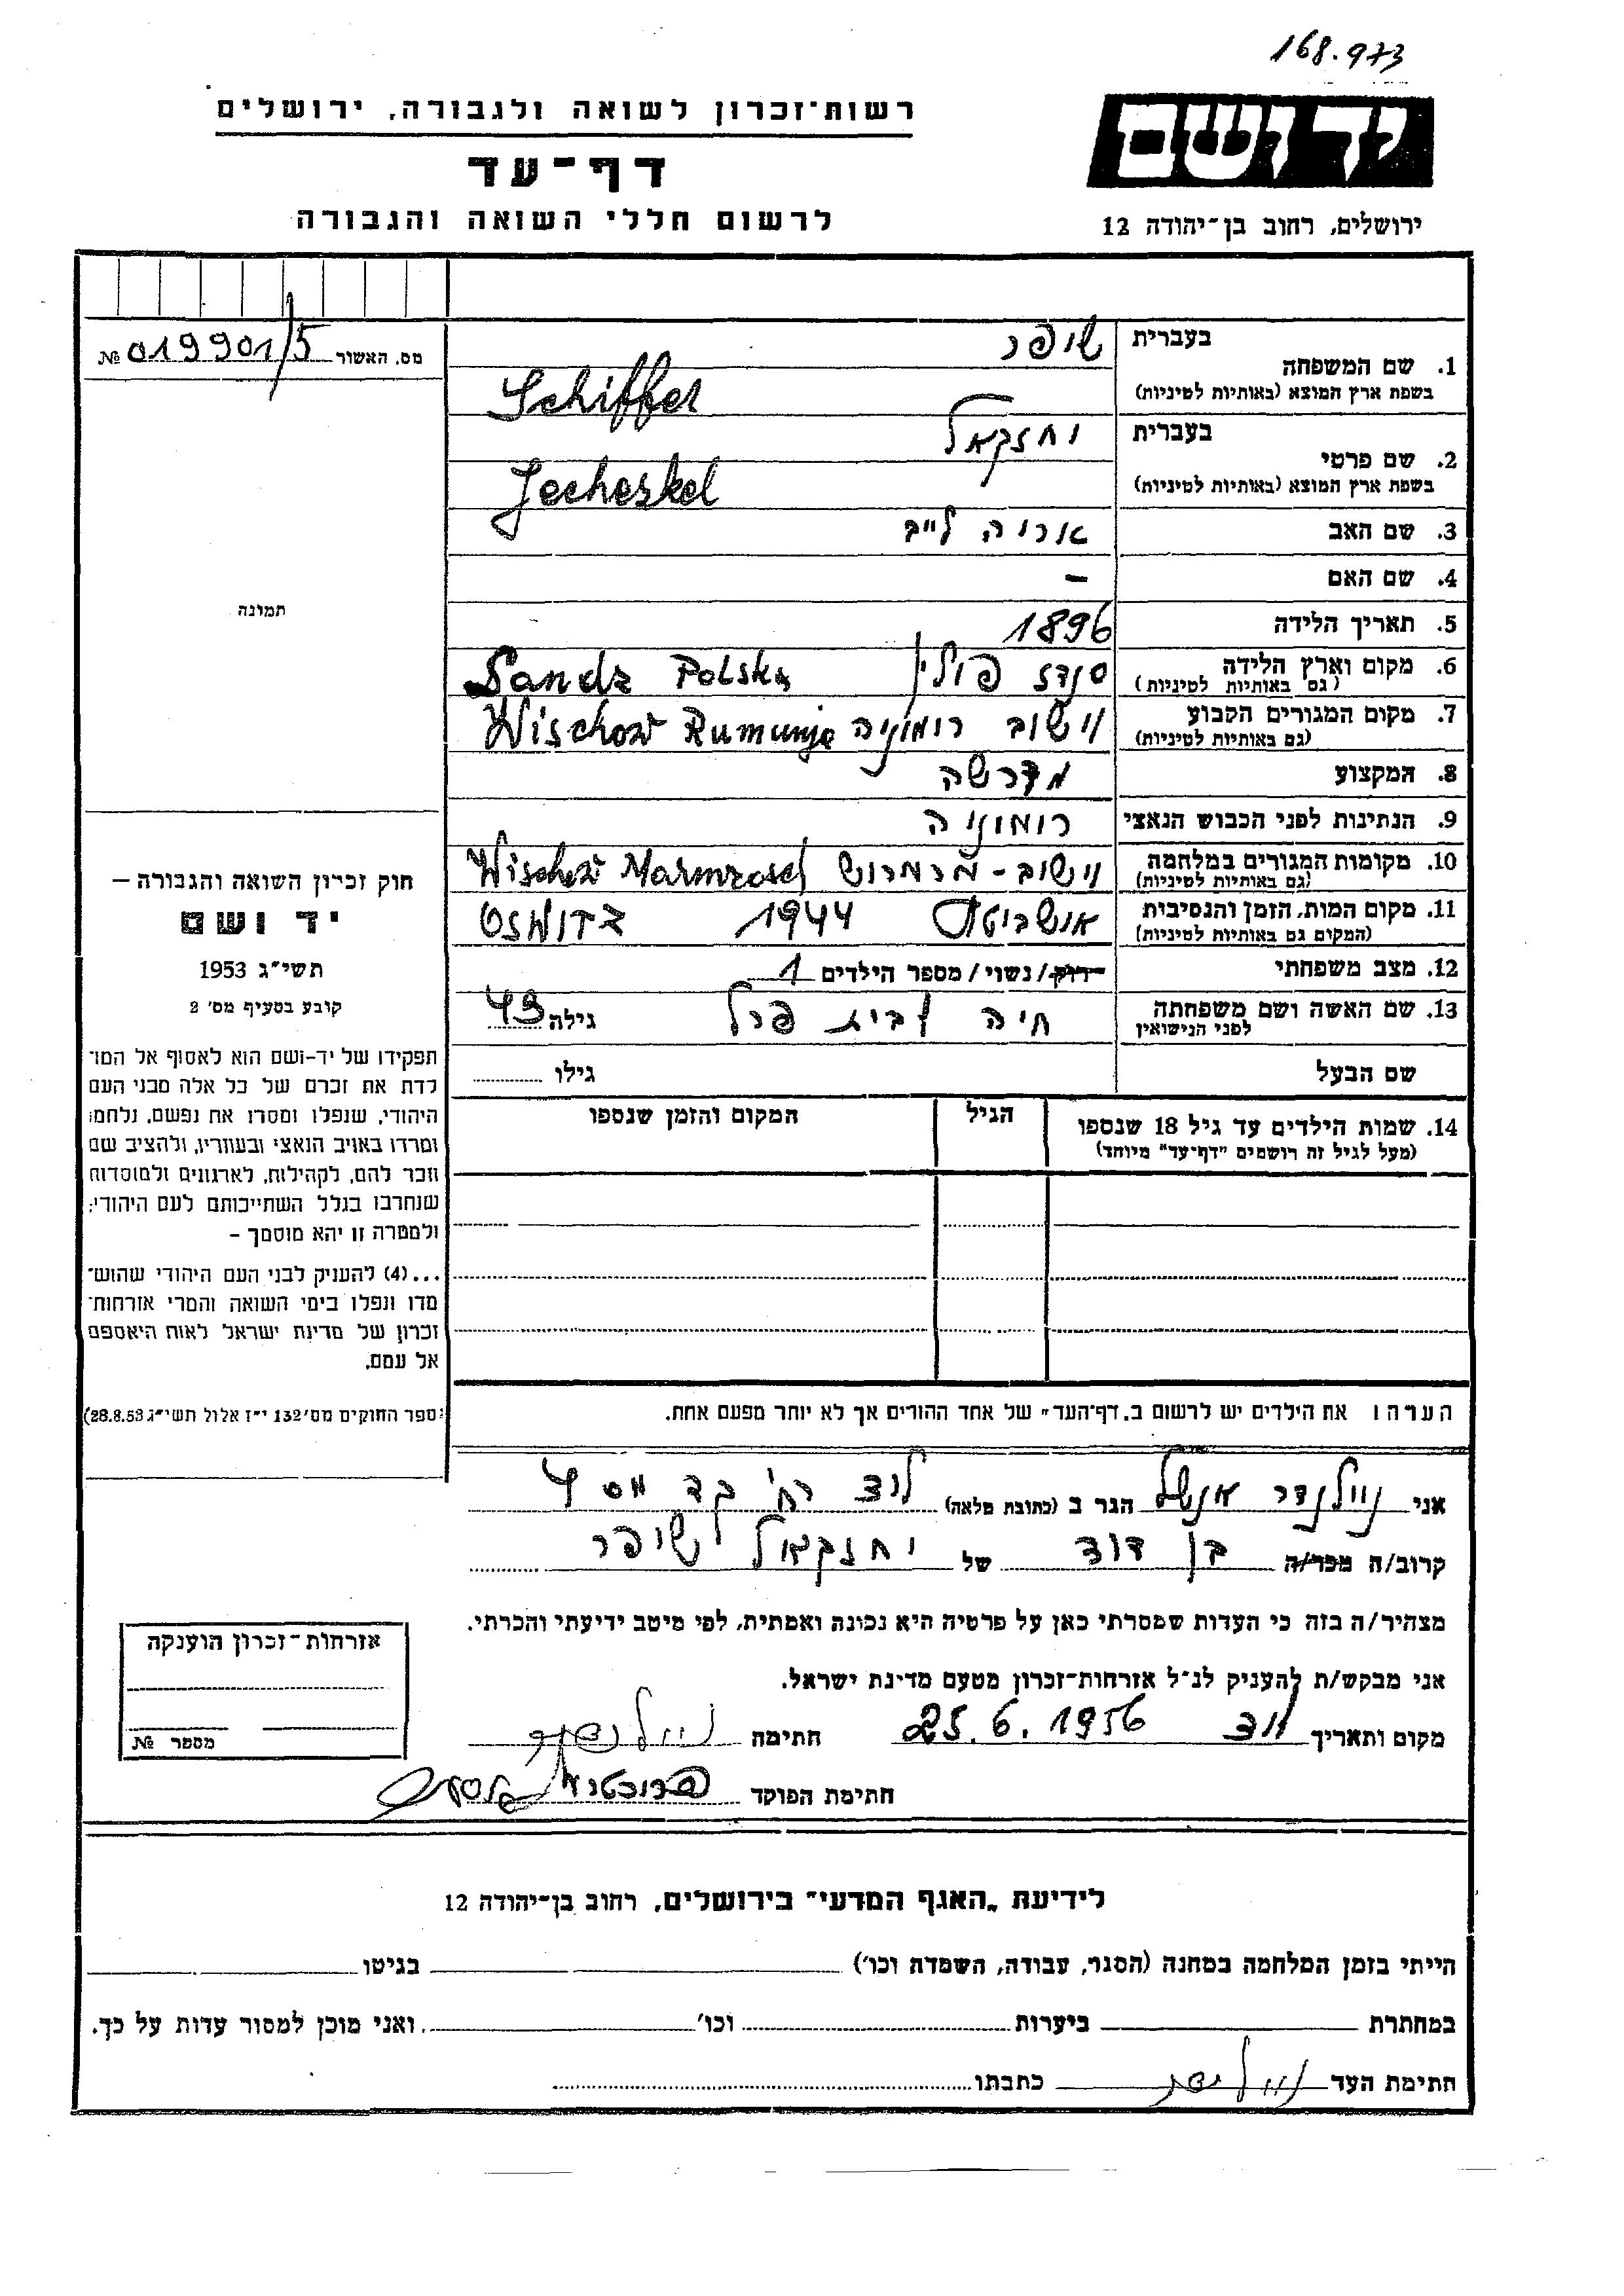 168.973
רשות־זכרון לשואה ולגבורה, ירושלים
דף־עד
לרשום חללי השואה והגבורה
יד ושם
ירושלים, רחוב בן־יהודה 12
מס. האשור 019901/5 №
1. שם המשפחה
בעברית שיפר
בשפת ארץ המוצא (באותיות לטיניות) Schiffer
2. שם פרטי
בעברית יחזקאל
בשפת ארץ המוצא (באותיות לטיניות) Jecheskel
3. שם האב אריה לייב
4. שם האם –
5. תאריך הלידה 1896
6. מקום וארץ הלידה סנדז פולין Sandz Polska
(גם באותיות לטיניות)
7. מקום המגורים הקבוע וישוב רומוניה Wischow Rumunje
(גם באותיות לטיניות)
8. המקצוע
9. הנתינות לפני הכבוש הנאצי רומוניה
10. מקומות המגורים במלחמה וישוב - מרמרוש Wischow Marmrosch
(גם באותיות לטיניות)
11. מקום המות, הזמן והנסיבות 1944 OSWITZ
(המקום גם באותיות לטיניות)
12. מצב משפחתי רוק/נשוי/מספר הילדים 1
13. שם האשה ושם משפחתה חיה לבית פרל גילה 43
לפני הנישואין
שם הבעל גילו
14. שמות הילדים עד גיל 18 שנספו הגיל המקום והזמן שנספו
(מעל לגיל זה רושמים "דף־עד" מיוחד)
הערה: את הילדים יש לרשום ב„דף־העד" של אחד ההורים אך לא יותר מפעם אחת.
תמונה
חוק זכרון השואה והגבורה –
יד ושם
תשי"ג 1953
קובע בסעיף מס' 2
תפקידו של יד-ושם הוא לאסוף אל המו־
לדת את זכרם של כל אלה מבני העם
היהודי, שנפלו ומסרו את נפשם, נלחמו
ומרדו באויב הנאצי ובעוזריו, ולהציב שם
וזכר להם, לקהילות, לארגונים ולמוסדות
שנחרבו בגלל השתייכותם לעם היהודי;
ולמטרה זו יהא מוסמך –
...(4) להעניק לבני העם היהודי שהוש־
מדו ונפלו בימי השואה והמרי אזרחות־
זכרון של מדינת ישראל לאות היאספם
אל עמם.
(ספר החוקים מס' 132 י"ז אלול תשי"ג 28.8.53)
אני ניולנדר אנשל הגר ב (כתובת מלאה) לוד רח' מס 4
קרוב/ה מכר/ה בן דוד של יחזקאל שיפר
מצהיר/ה בזה כי העדות שמסרתי כאן על פרטיה היא נכונה ואמתית, לפי מיטב ידיעתי והכרתי.
אני מבקש/ת להעניק לנ"ל אזרחות־זכרון מטעם מדינת ישראל.
מקום ותאריך לוד 25.6.1956 חתימה
חתימת הפוקד
אזרחות־זכרון הוענקה
מספר №
לידיעת „האגף המדעי" בירושלים, רחוב בן־יהודה 12
הייתי בזמן המלחמה במחנה (הסגר, עבודה, השמדה וכו') בגיטו
במחתרת ביערות וכו' ואני מוכן למסור עדות על כך.
חתימת העד כתבתו